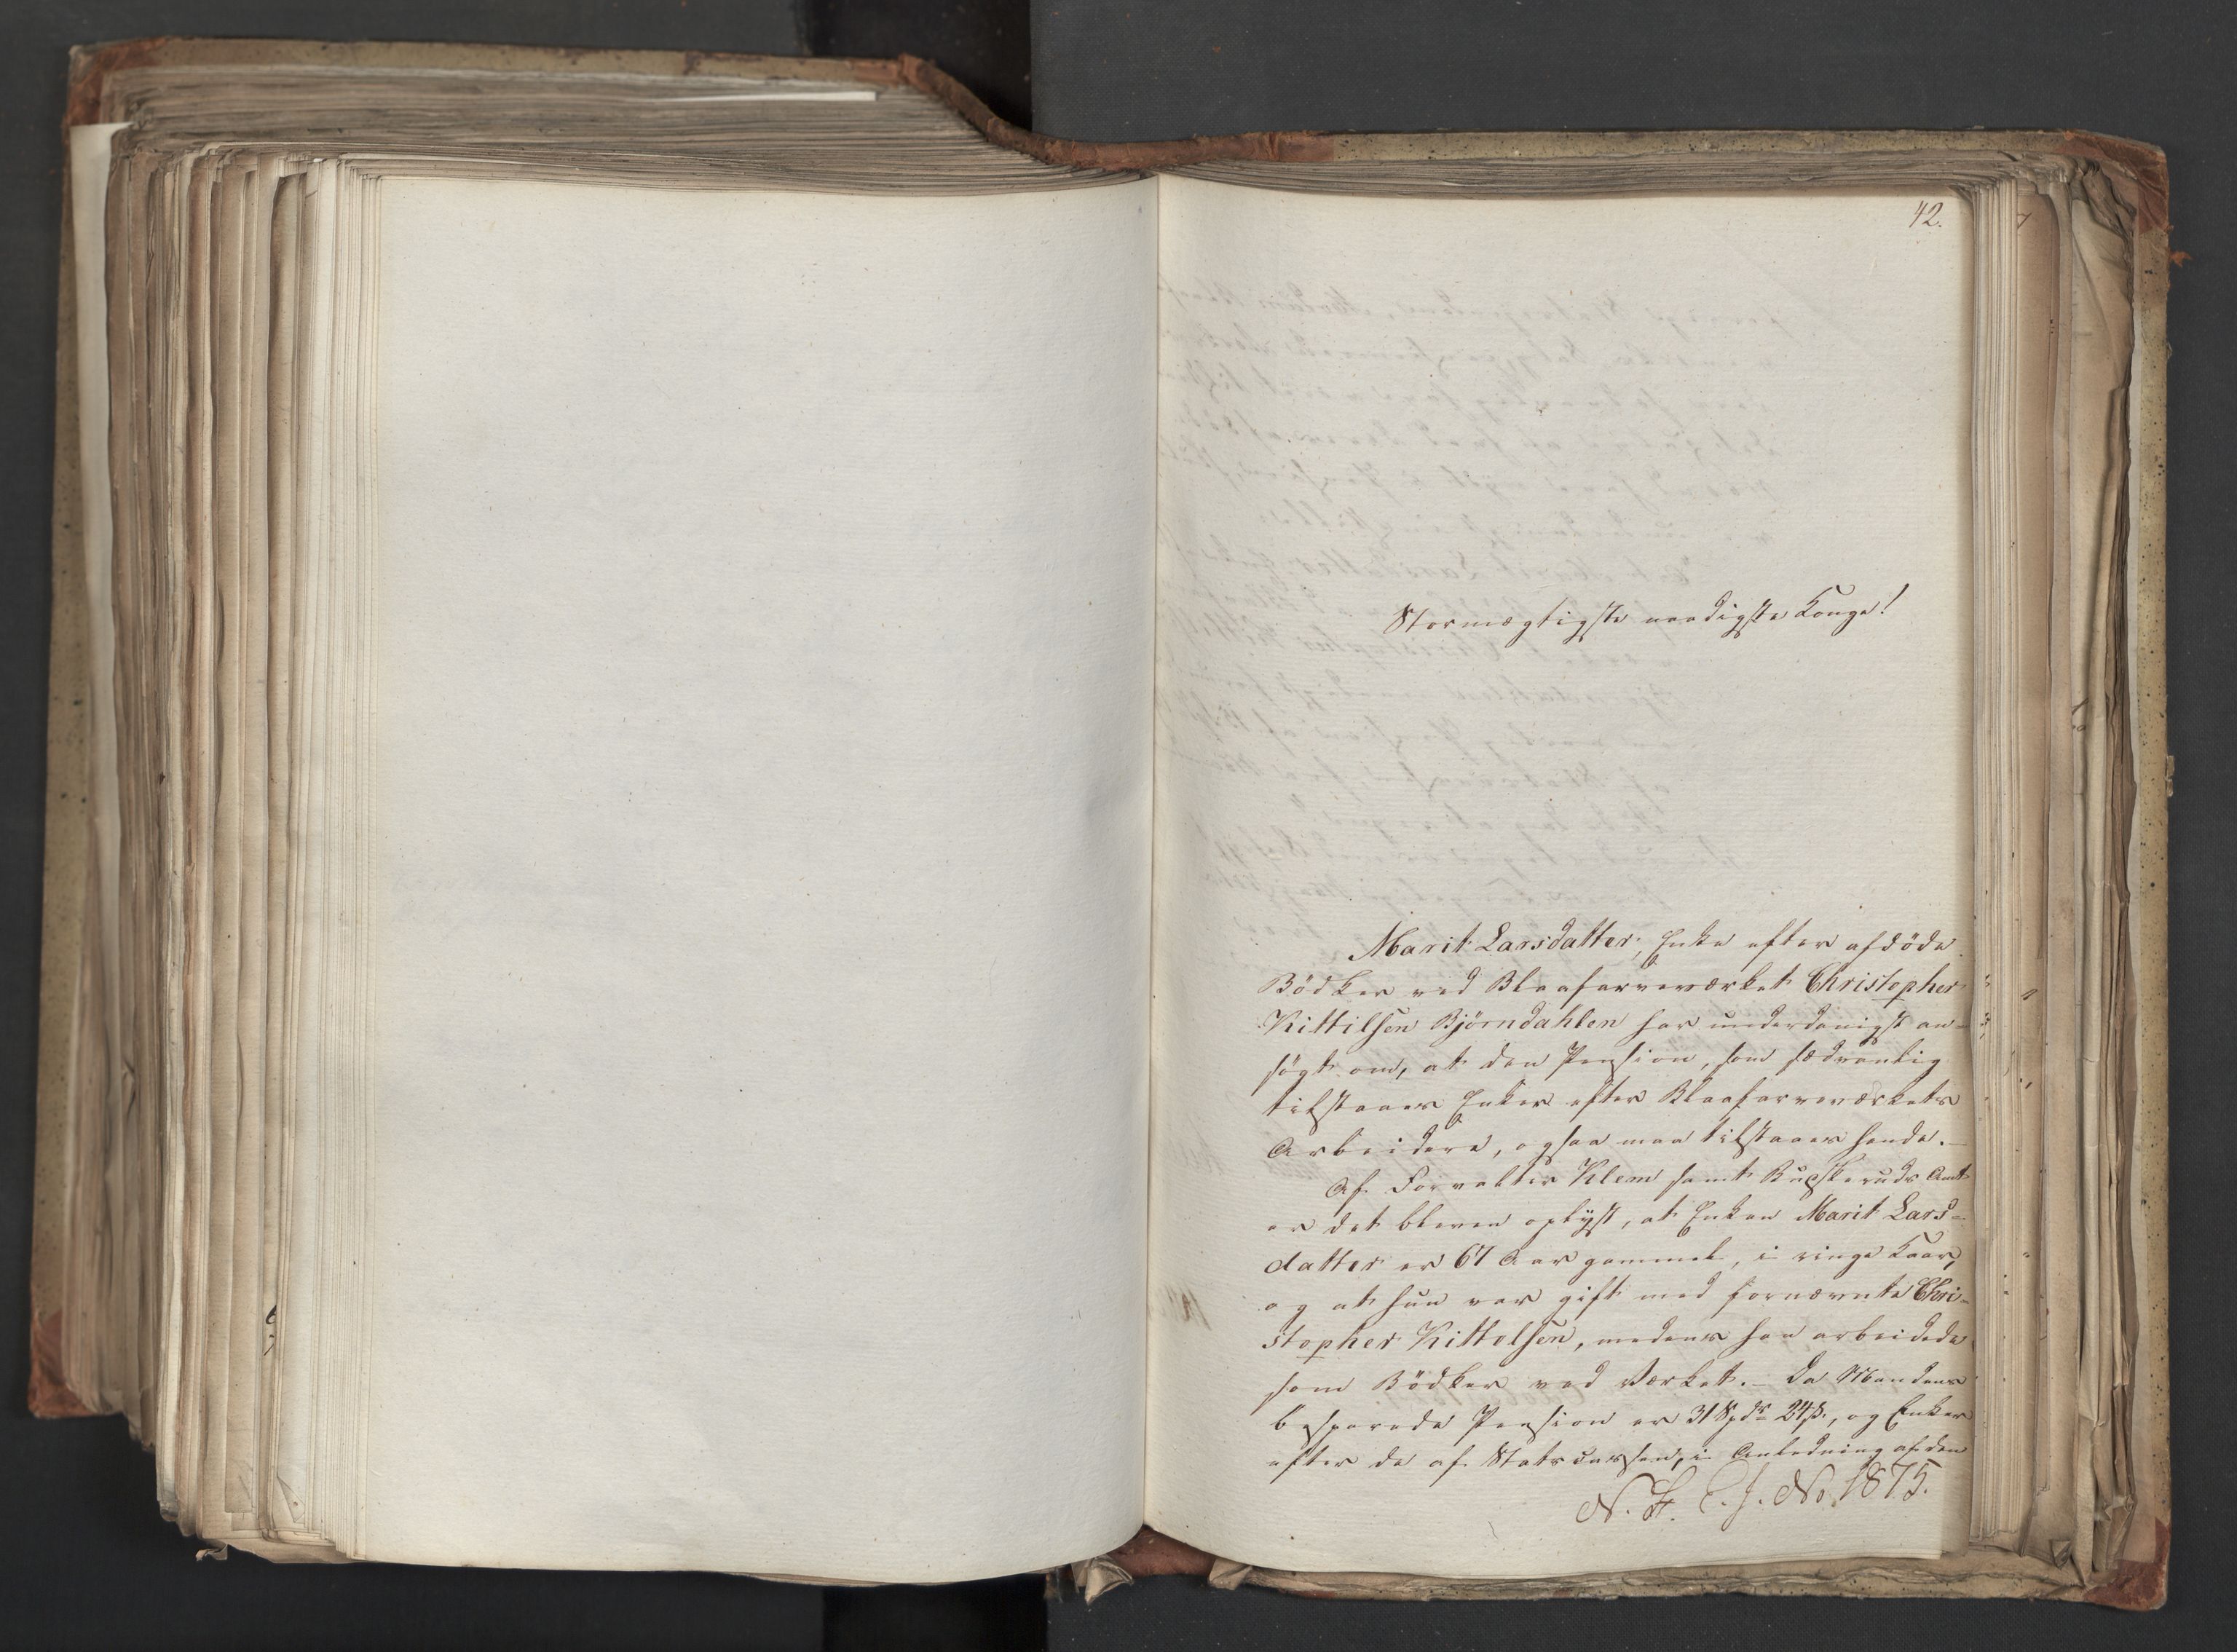 42.
Stormægtigste naadigste Konge!
Marit Larsdatter, Enke efter afdöde
Bödker ved Blaafarveværket Christopher
Kittilsen Björndahlen har underdanigst an-
søgt om, at den Pension, som sædvanlig
tilstaaes Enker efter Blaafarveværkets
Arbeidere, ogsaa maa tilstaaes hende.-
Af Forvalter Klem samt Buskeruds Amt
er det bleven oplyst, at Enken Marit Lars-
datter er 67 Aar gammel, i ringe Kaar,
og at hun var gift med fornævnte Chri-
stopher Kittelsen, medens han arbeidede
som Bödker ved Værket.- Da Mandens
besparede Pension er 31 Spdr 24 ß., og Enker
efter de af Statscassen, i Anledning af den
N. F. C. J. No. 1875.